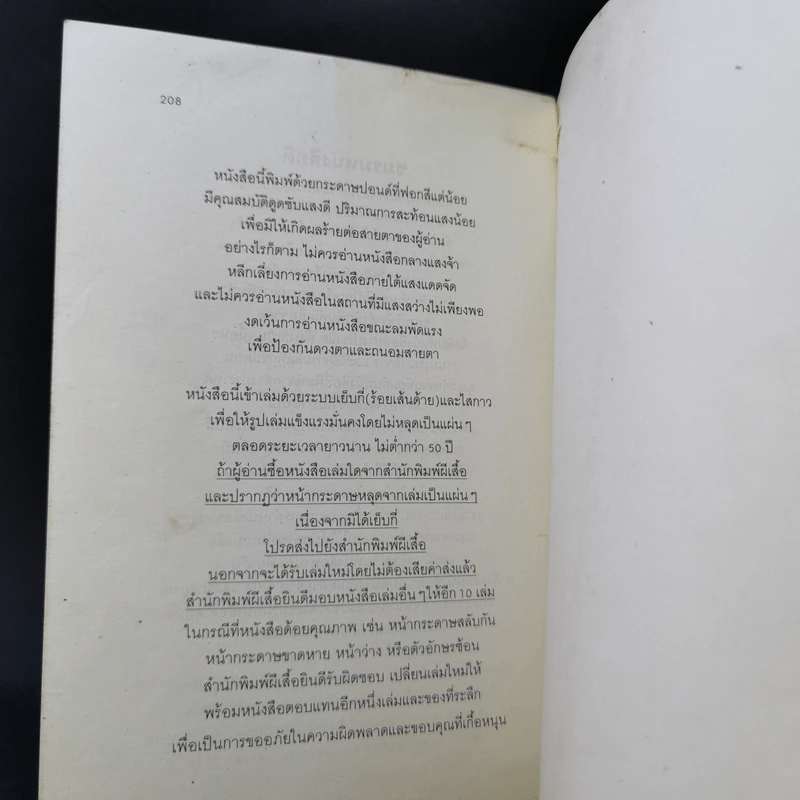 208
หนังสือนี้พิมพ์ด้วยกระดาษปอนด์ที่ฟอกสีแต่น้อย
มีคุณสมบัติดูดซับแสงดี ปริมาณการสะท้อนแสงน้อย
เพื่อมิให้เกิดผลร้ายต่อสายตาของผู้อ่าน
อย่างไรก็ตาม ไม่ควรอ่านหนังสือกลางแสงจ้า
หลีกเลี่ยงการอ่านหนังสือภายใต้แสงแดดจัด
และไม่ควรอ่านหนังสือในสถานที่มีแสงสว่างไม่เพียงพอ
งดเว้นการอ่านหนังสือขณะลมพัดแรง
เพื่อป้องกันดวงตาและถนอมสายตา
หนังสือนี้เข้าเล่มด้วยระบบเย็บกี่(ร้อยเส้นด้าย)และไสกาว
เพื่อให้รูปเล่มแข็งแรงมั่นคงโดยไม่หลุดเป็นแผ่นๆ
ตลอดระยะเวลายาวนาน ไม่ต่ำกว่า 50 ปี
ถ้าผู้อ่านซื้อหนังสือเล่มใดจากสำนักพิมพ์ผีเสื้อ
และปรากฏว่าหน้ากระดาษหลุดจากเล่มเป็นแผ่นๆ
เนื่องจากมิได้เย็บกี่
โปรดส่งไปยังสำนักพิมพ์ผีเสื้อ
นอกจากจะได้รับเล่มใหม่โดยไม่ต้องเสียค่าส่งแล้ว
สำนักพิมพ์ผีเสื้อยินดีมอบหนังสือเล่มอื่นๆให้อีก 10 เล่ม
ในกรณีที่หนังสือด้อยคุณภาพ เช่น หน้ากระดาษสลับกัน
หน้ากระดาษขาดหาย หน้าว่าง หรือตัวอักษรซ้อน
สำนักพิมพ์ผีเสื้อยินดีรับผิดชอบ เปลี่ยนเล่มใหม่ให้
พร้อมหนังสือตอบแทนอีกหนึ่งเล่มและของที่ระลึก
เพื่อเป็นการขออภัยในความผิดพลาดและขอบคุณที่เกื้อหนุน